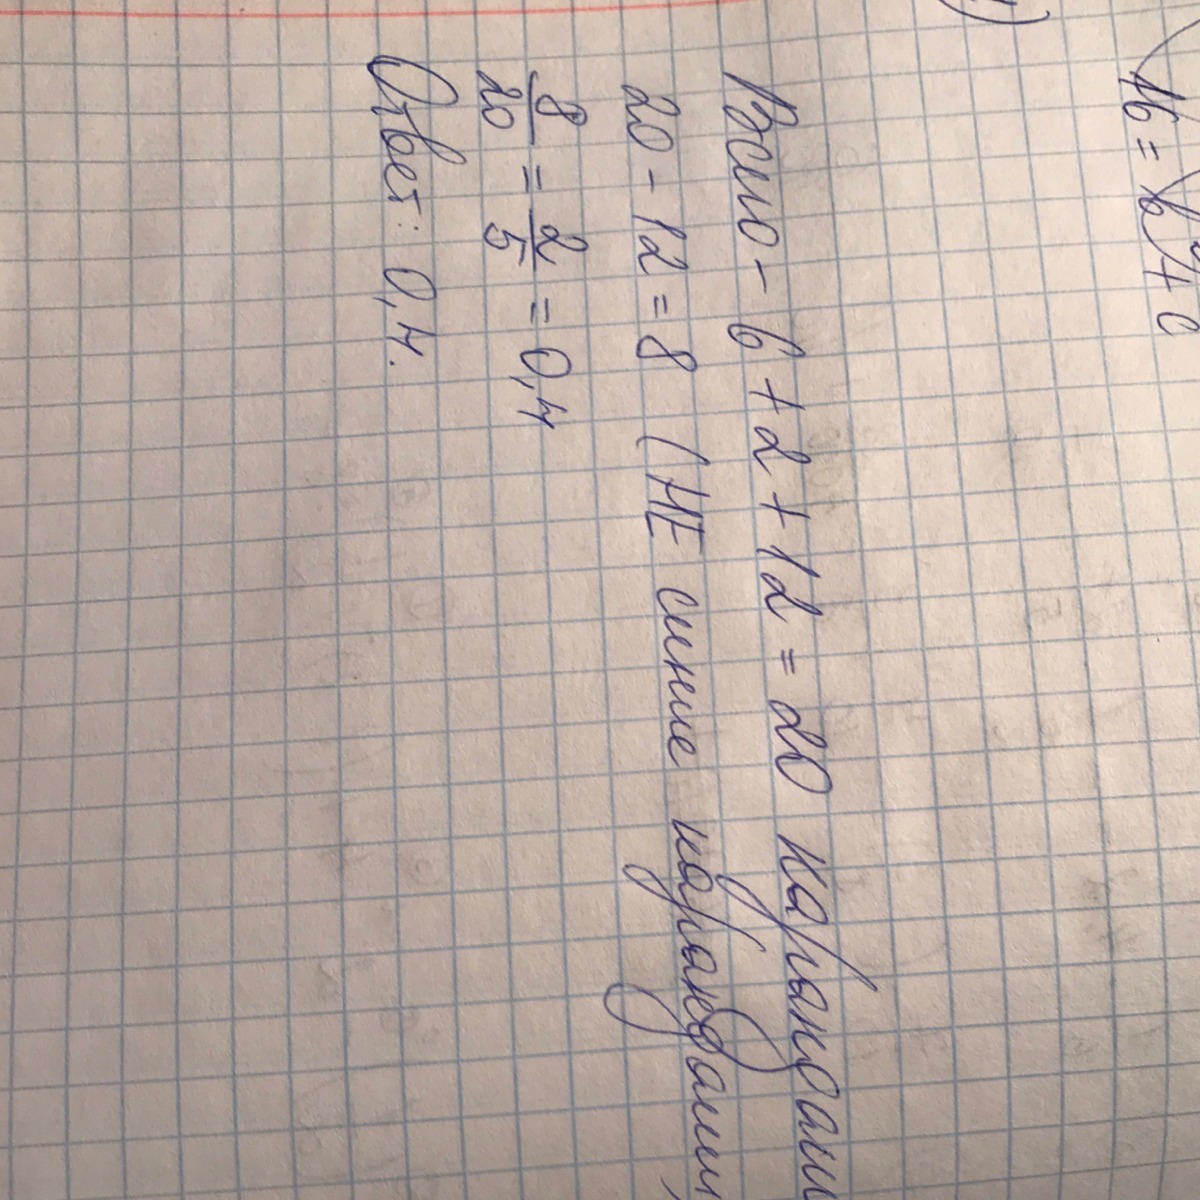 16 =
Всего - 6 + 2 + 12 = 20 карандаш
20 - 12 = 8 (НЕ синие карандаши,
8/20 = 2/5 = 0,4
Ответ: 0,4.